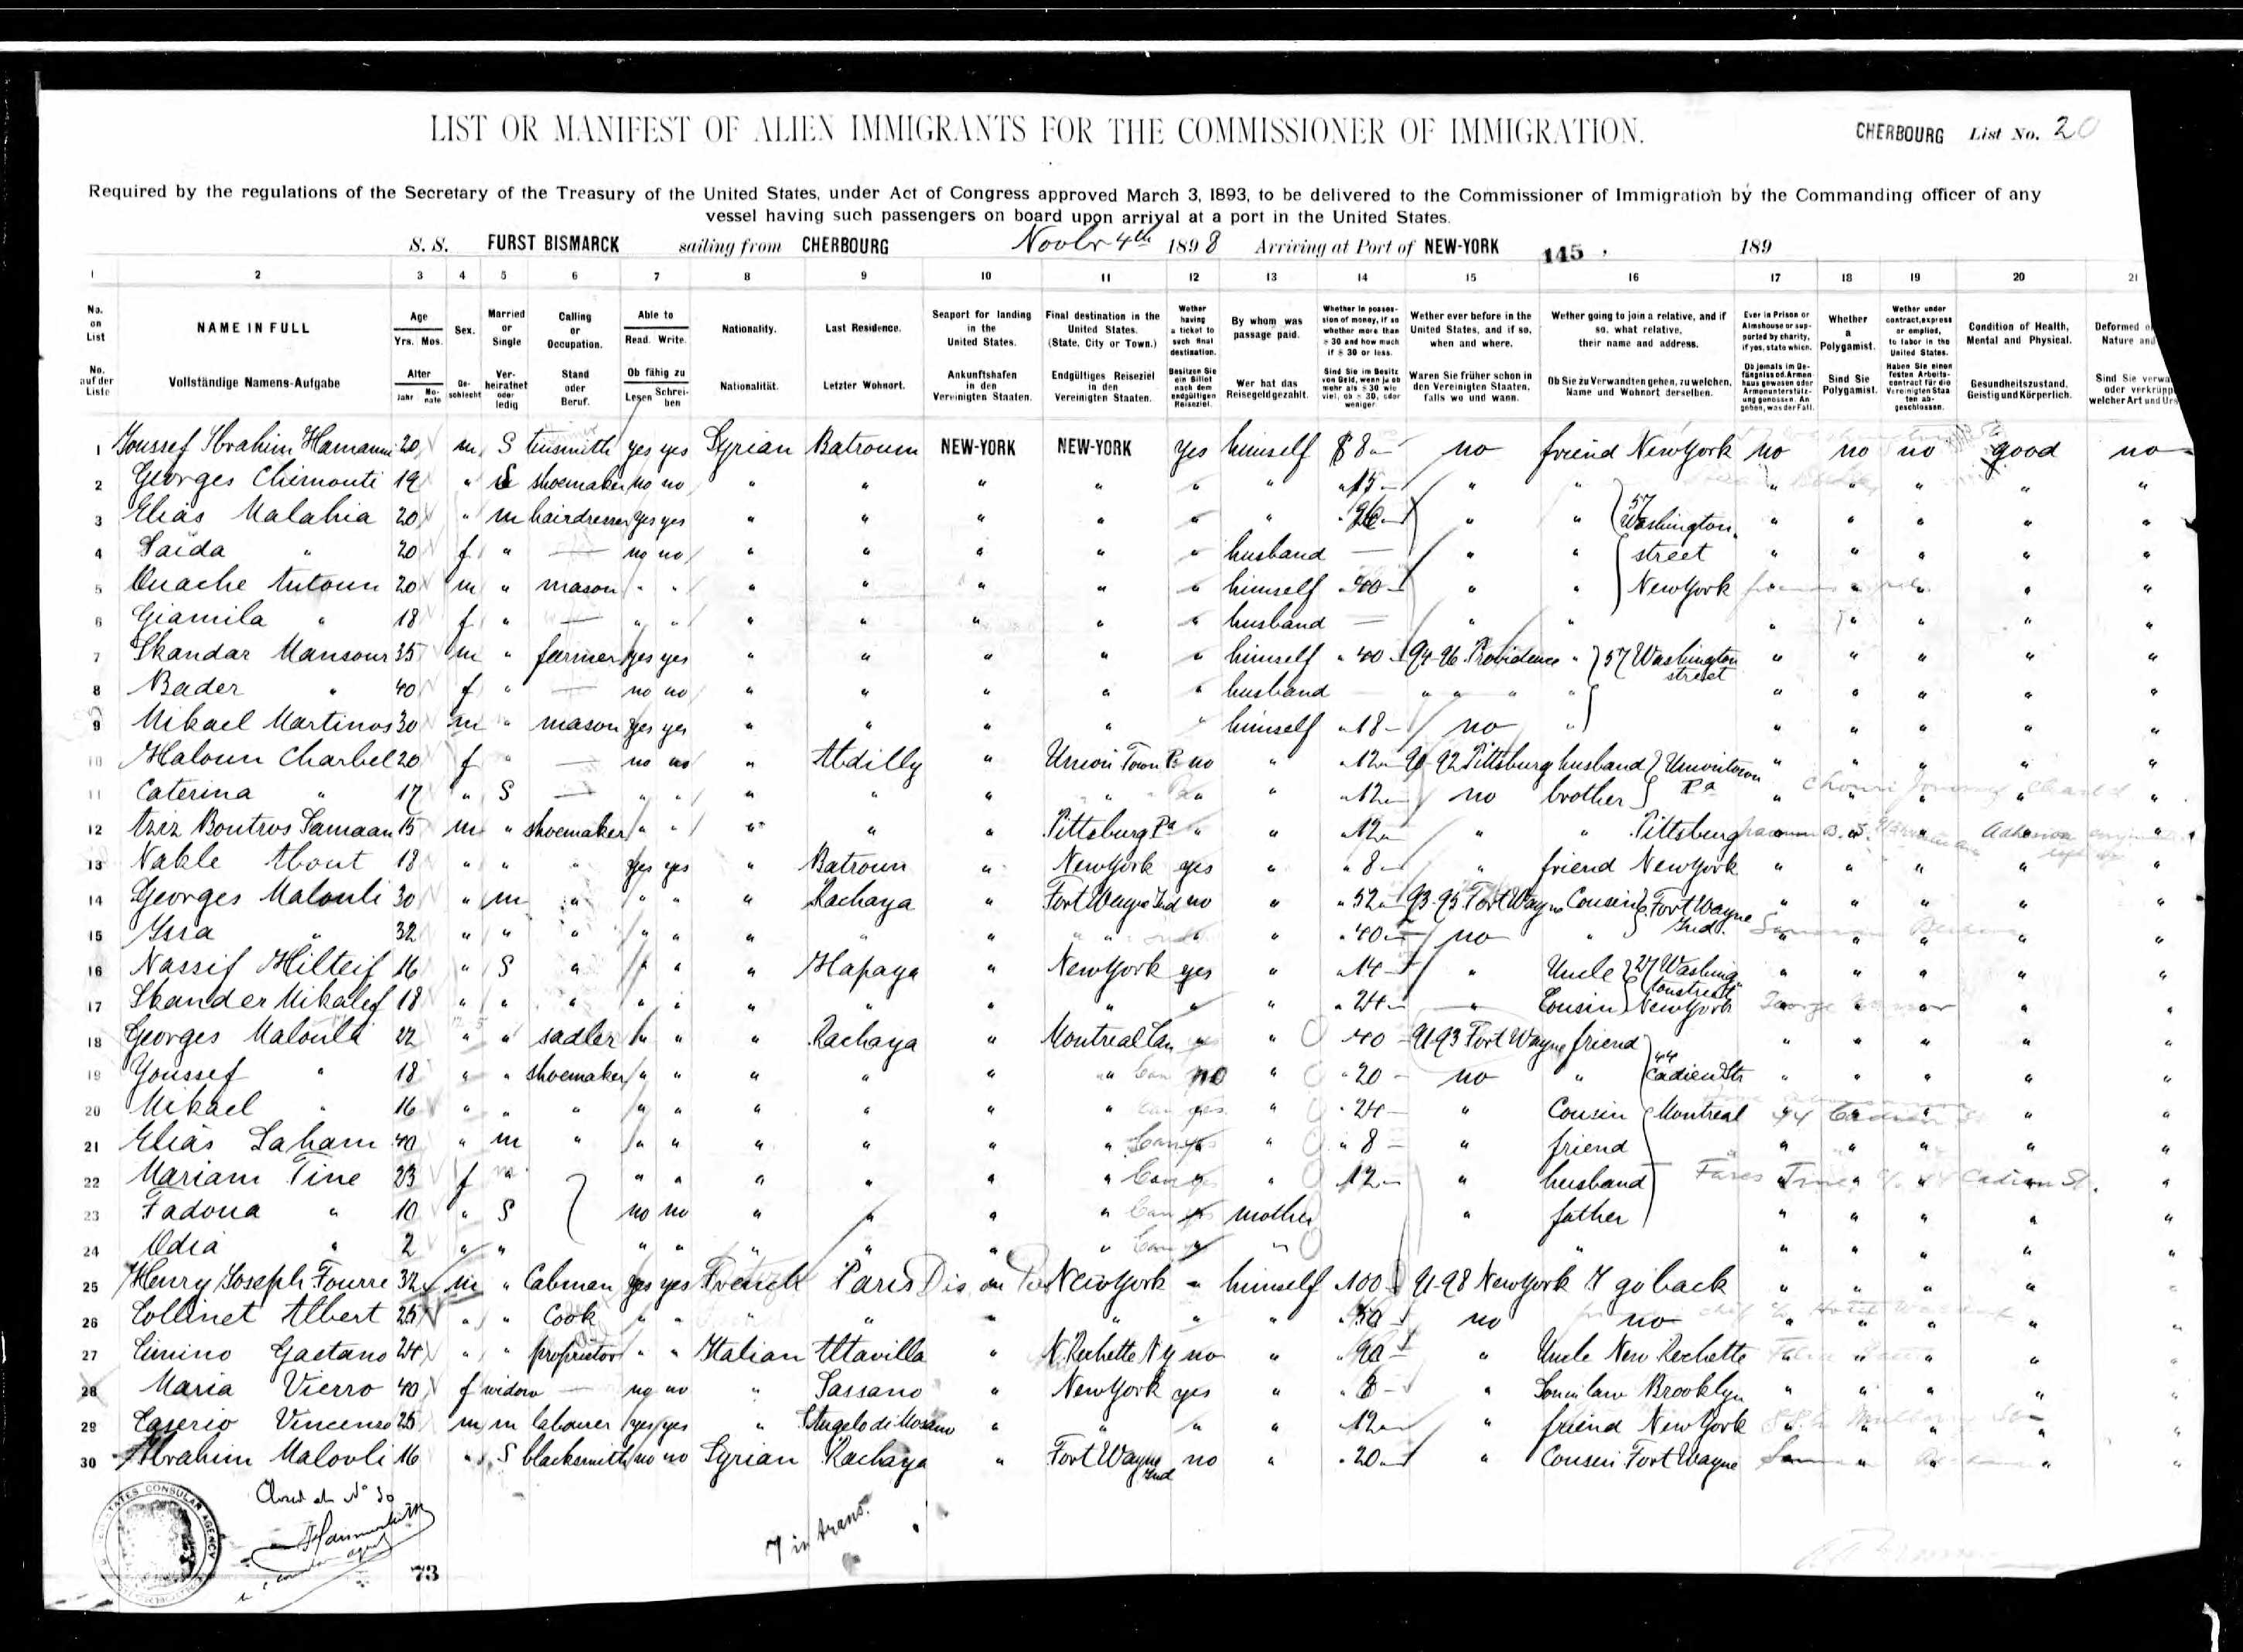 LIST OR MANIFEST OF ALIEN IMMIGRANTS FOR THE COMMISSIONER OF IMMIGRATION.
CHERBOURG List No. 20
Required by the regulations of the Secretary of the Treasury of the United States, under Act of Congress approved March 3, 1893, to be delivered to the Commissioner of Immigration by the Commanding officer of any
vessel having such passengers on board upon arriyal at a port in the United States.
S. S. FURST BISMARCK sailing from CHERBOURG Novbr 4th 1898 Arriving at Port of NEW-YORK 145 189
1 2 3 4 5 6 7 8 9 10 11 12 13 14 15 16 17 18 19 20 21
No. on List
NAME IN FULL
Age Yrs. Mos.
Sex.
Married or Single
Calling or Occupation.
Able to Read. Write.
Nationality.
Last Residence.
Seaport for landing in the United States.
Final destination in the United States. (State, City or Town.)
Wether having a ticket to such final destination.
By whom was passage paid.
Whether in possession of money, if so whether more than $ 30 and how much if $ 30 or less.
Wether ever before in the United States, and if so, when and where.
Wether going to join a relative, and if so, what relative, their name and address.
Ever in Prison or Almshouse or supported by charity, if yes, state which.
Whether a Polygamist.
Wether under contract, express or emplied, to labor in the United States.
Condition of Health, Mental and Physical.
Deformed
Nature and
No. auf der Liste
Vollständige Namens-Aufgabe
Alter Jahr Monate
Geschlecht
Verheirathet oder ledig
Stand oder Beruf.
Ob fähig zu Lesen Schreiben
Nationalität.
Letzter Wohnort.
Ankunftshafen in den Vereinigten Staaten.
Endgültiges Reiseziel in den Vereinigten Staaten.
Besitzen Sie ein Billet nach dem endgültigen Reiseziel.
Wer hat das Reisegeld gezahlt.
Sind Sie im Besitz von Geld, wenn ja ob mehr als $ 30 wie viel, ob $ 30, oder weniger.
Waren Sie früher schon in den Vereinigten Staaten, falls wo und wann.
Ob Sie zu Verwandten gehen, zu welchen, Name und Wohnort derselben.
Sind Sie Polygamist.
Gesundheitszustand, Geistig und Körperlich.
1 Youssef Ibrahim Hamanni 20 m S tinsmith yes yes Syrian Batroum NEW-YORK NEW-YORK yes himself $ 8 no friend New York no no no good no
2 Georges Chimonti 19 " S shoemaker no no " " " " " " " 15 " " " " " " "
3 Elias Malahia 20 " m hairdresser yes yes " " " " " " " 26 " " 57 Washington " " " " "
4 Saïda " 20 f " — no no " " " " " husband — " " street " " " " "
5 Ouache Antoun 20 m " mason " " " " " " " himself " 40 " " New York " " " " "
6 Giamila " 18 f " — " " " " " " " husband — " " " " " " "
7 Skandar Mansour 35 m " farmer yes yes " " " " " himself " 40 94-96 Providence " 57 Washington street " " " " "
8 Bader " 40 f " — no no " " " " " husband " " " " " " " " "
9 Mikael Martinos 30 m " mason yes yes " " " " " himself " 18 no " " " " " "
10 Haloun Charbel 20 f " — no no " Abdilly " Union Town Pa no " " 12 90-92 Pittsburg husband Uniontown Pa " " " " "
11 Caterina " 17 " S — " " " " " " " " " 12 no brother " " " " "
12 Aziz Boutros Samaan 15 m " shoemaker " " " " " Pittsburg Pa " " " 12 " " Pittsburg " " " " "
13 Nakle About 18 " " " yes yes " Batroun " New York yes " " 8 " friend New York " " " " "
14 Georges Malouli 30 " m " " " " Rachaya " Fort Wayne Ind no " " 52 93-95 Fort Wayne Cousin Fort Wayne Ind. " " " " "
15 Issa " 32 " " " " " " " " " " " " " 40 no " " " " " "
16 Nassif Hilteif 16 " S " " " " Hapaya " New York yes " " 14 " Uncle 27 Washington street " " " " "
17 Skander Mikalef 18 " " " " " " " " " " " " 24 " Cousin New York " " " " "
18 Georges Malouli 22 " " sadler " " " Rachaya " Montreal Can " " 40 91-93 Fort Wayne friend " " " " "
19 Youssef " 18 " " shoemaker " " " " " " Can no " " 20 no " 44 Cadieu Str " " " " "
20 Mikael " 16 " " " " " " " " " Can yes " " 24 " Cousin Montreal " " " " "
21 Elias Saham 40 " m " " " " " " " Can yes " " 8 " friend " " " " "
22 Mariam Tine 23 f m " " " " " " Can " " 12 " husband " " " " "
Fares Tine 44 Cadieu St.
23 Fadoua " 10 " S no no " " " " Can mother " father " " " " "
24 Odia " 2 " " " " " " " " Can " " " " " " " "
25 Henry Joseph Fourre 32 m " Cabman yes yes French Paris New York " himself " 100 91-98 New York I go back " " " " "
26 Collinet Albert 25 " " Cook " " " " " " " " 50 no no " " " " "
27 Cimino Gaetano 24 " " proprietor " " Italian Altavilla " N. Rochette N y no " " 90 " Uncle New Rochette " " " " "
28 Maria Vierro 40 f widow — no no " Sassano " New York yes " " 8 " Son in law Brooklyn " " " " "
29 Caserio Vincenzo 25 m m labourer yes yes " " " " " " 12 " friend New York " " " " "
30 Ibrahim Malovli 16 " S blacksmith no no Syrian Rachaya " Fort Wayne Ind no " " 20 " Cousin Fort Wayne " " " " "
Closed at No 30
STATES CONSULAR AGENCY
7 in trans.
73